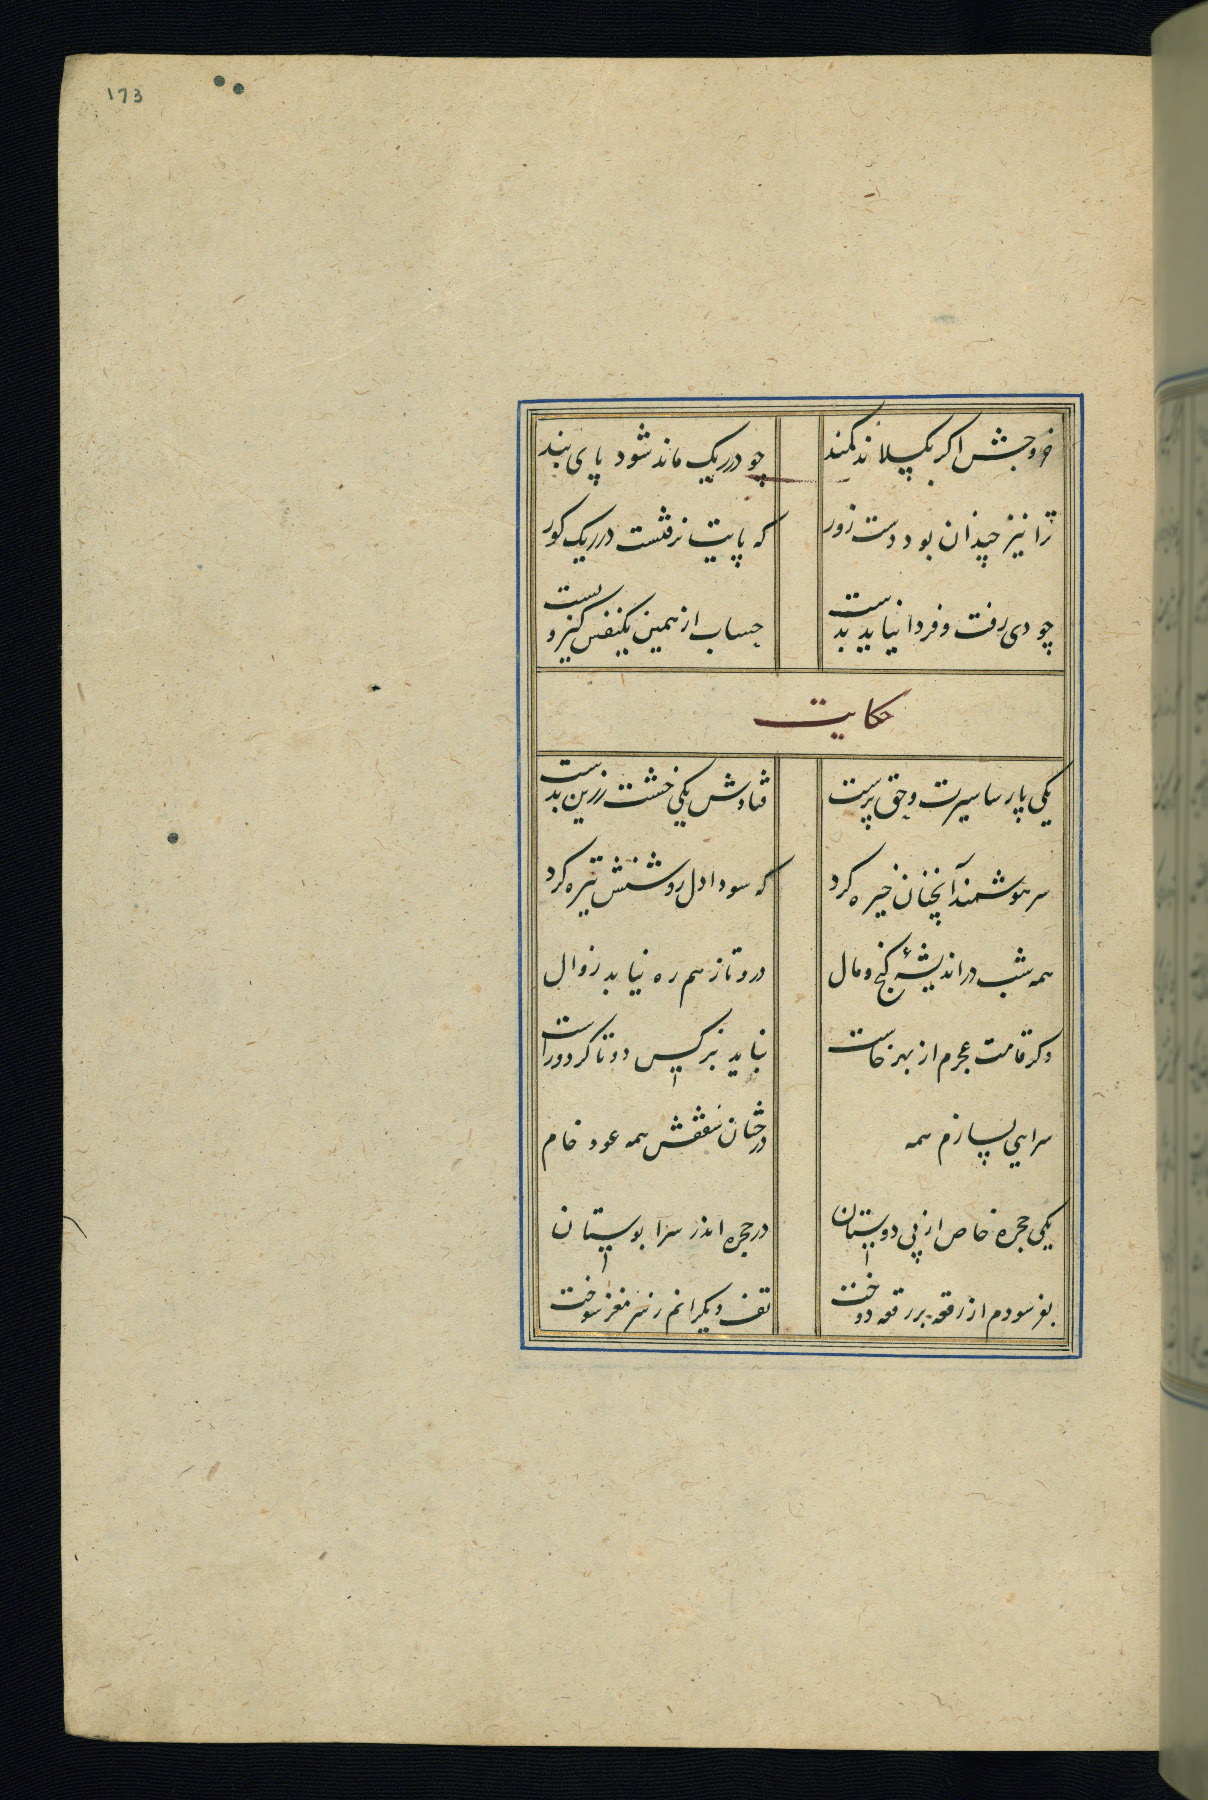 173
خروجش اکر بکسلاند کمند چو در ریک ماند شود پای بند
ترا نیز چندان بود دست زور که پایت نرفتست در ریک کور
چو دی رفت و فردا نیاید بدست حساب از همین یکنفس کن برو
حکایت
یکی پارسا سیرت و حق پرست فتادش یکی خشت زرین بدست
سر هوشمند آنچنان خیره کرد که سودا دل روشنش تیره کرد
همه شب در اندیشهٔ کنج و مال درو تا زیم ره نیابد زوال
دکر قامت عجزم از بهر خاست نباید بر کس دوتا کرد و راست
سرایی بسازم همه درختان سقفش همه عود خام
یکی حجره خاص از پی دوستان در حجره اندر سرا بوستان
بفرسودم از رقعه بر رقعه دوخت تف دیکرانم مغز سوخت